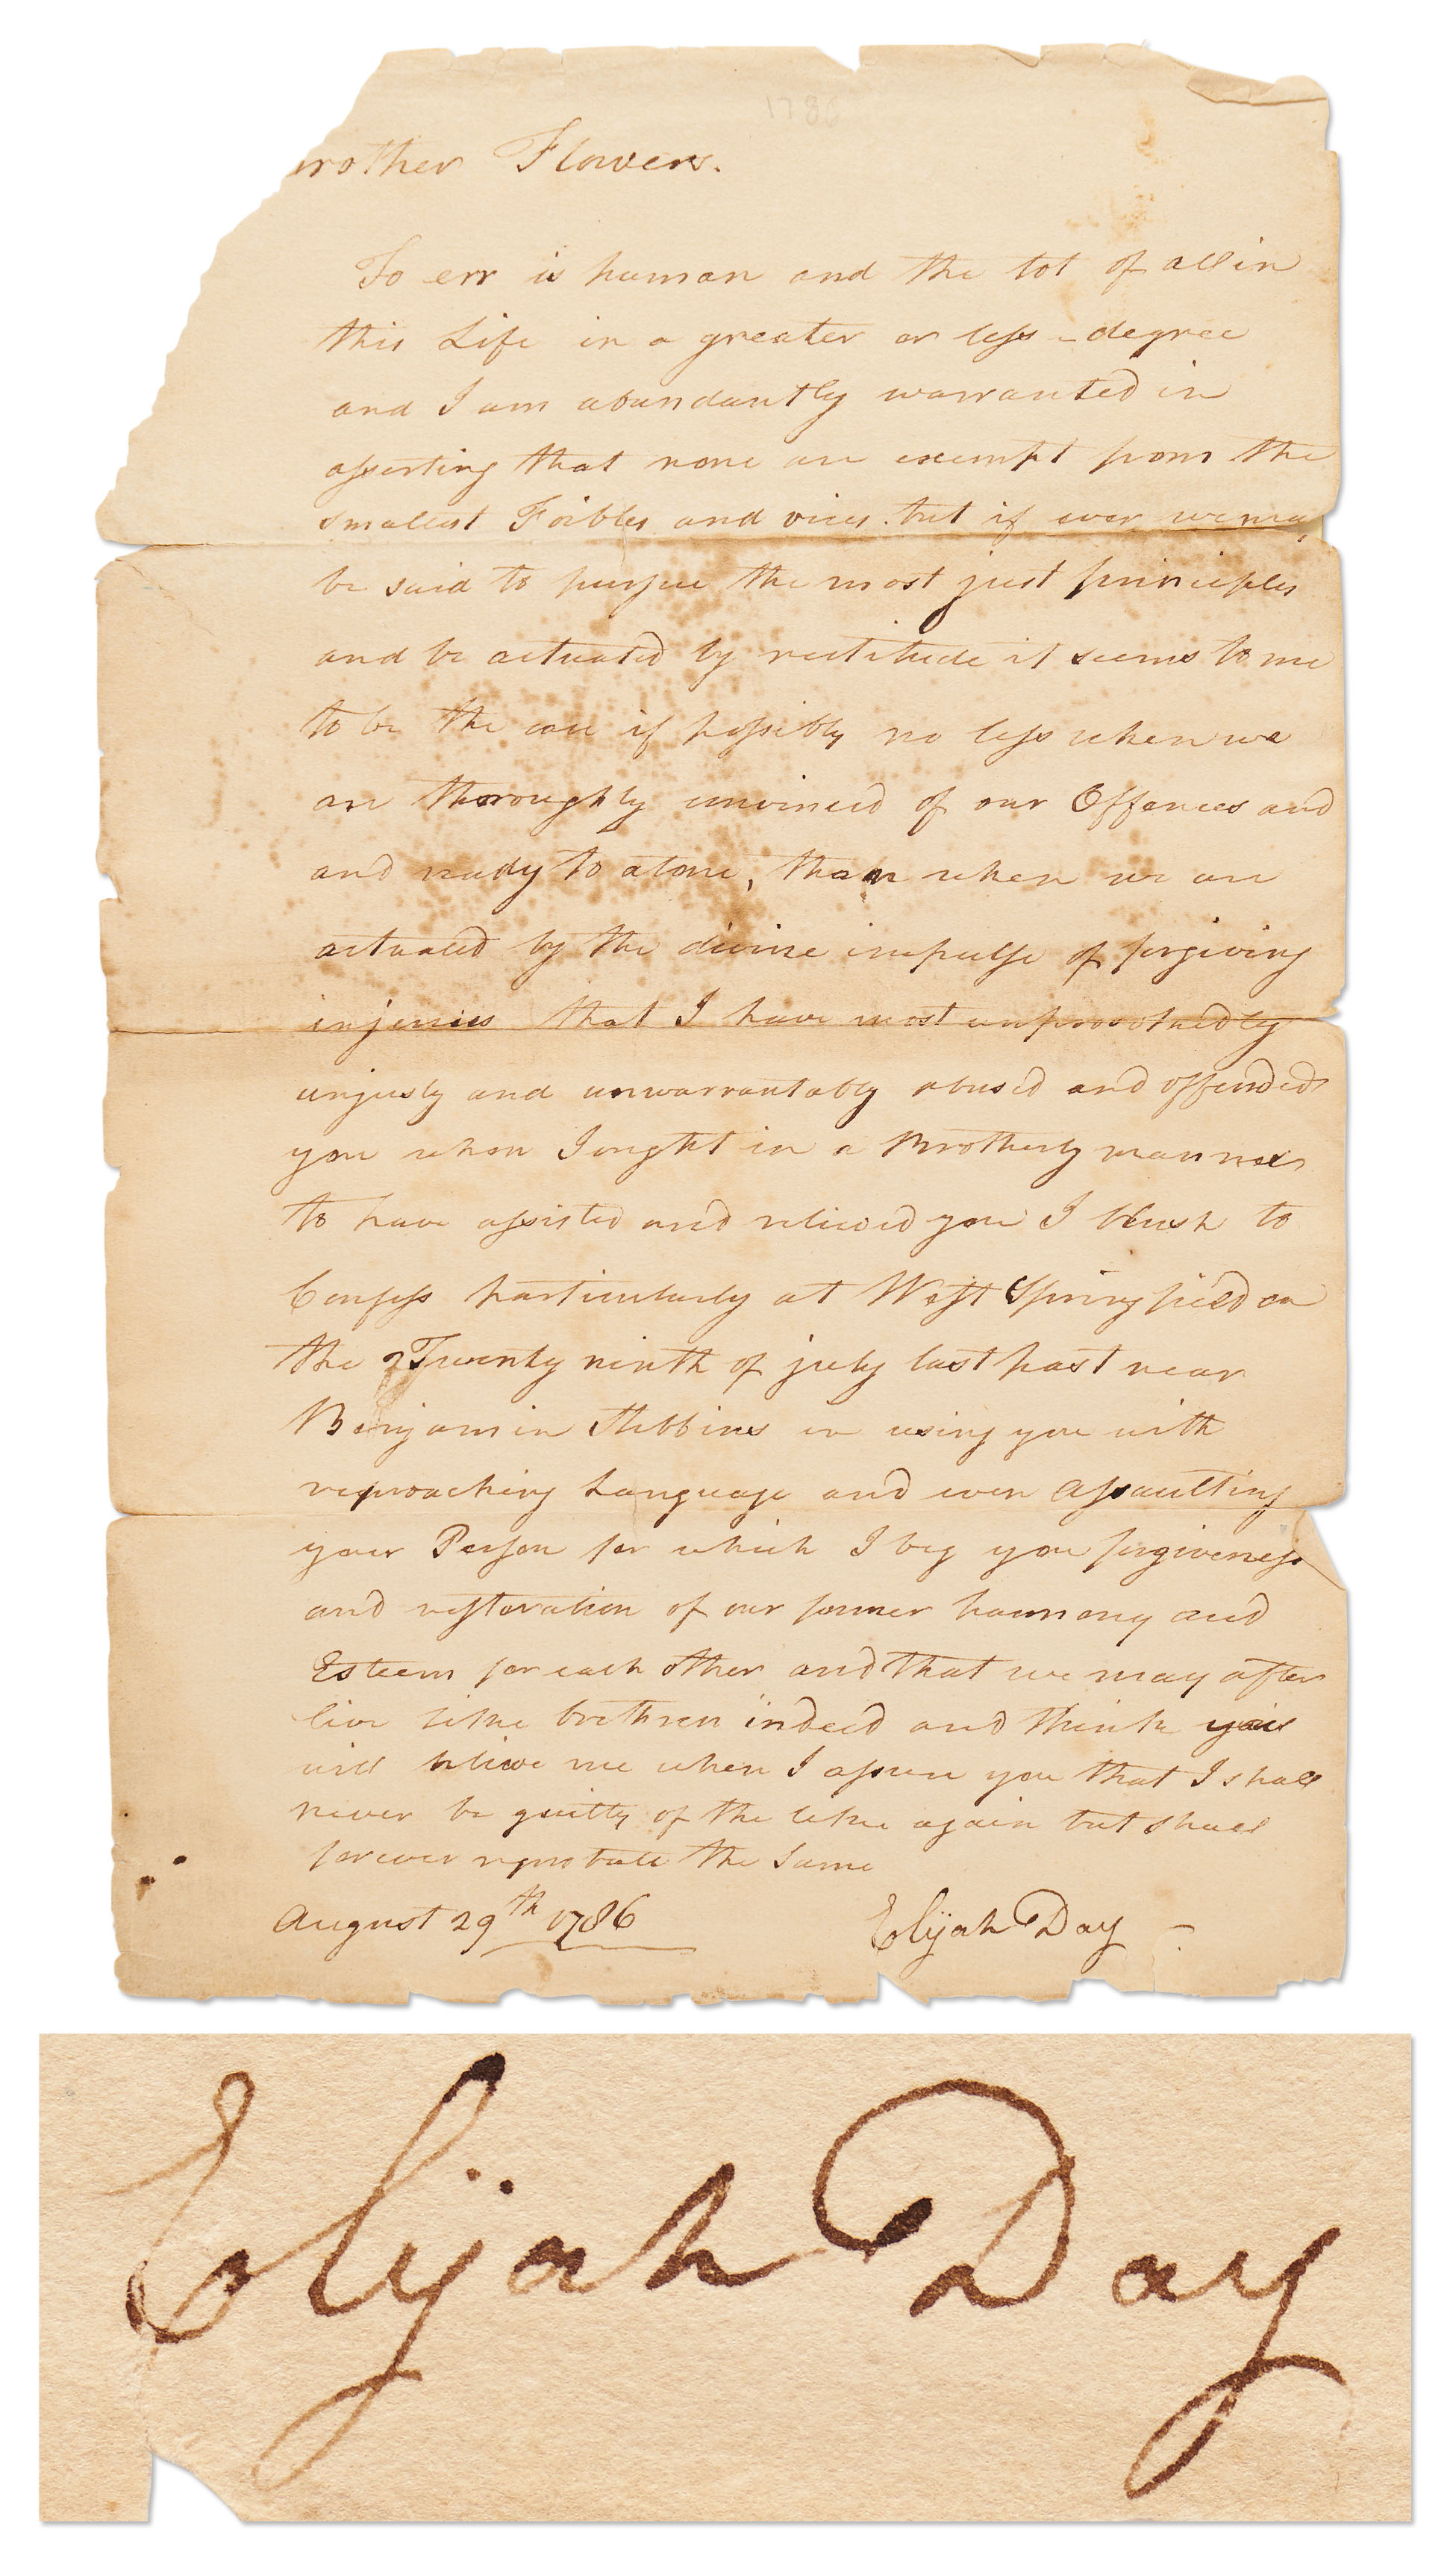 1786
rother Flowers.
To err is human and the lot of all in
this Life in a greater or less degree
and I am abundantly warranted in
asserting that none are exempt from the
smallest Foibles and vices. but if ever we may
be said to pursue the most just principles
and be actuated by rectitude it seems to me
to be the case if possibly no less when we
are thoroughly convinced of our Offences and
and ready to atone, than when we are
actuated by the divine impulse of forgiving
injuries that I have most unprovokedly
unjusly and unwarrantably abused and offended
you when I ought in a Brotherly manner
to have assisted and relieved you I blush to
Confess particularly at West Springfield on
the Twenty ninth of july last past near
Benjamin Stebbins in using you with
reproaching Language and even Assaulting
your Person for which I beg you forgiveness
and restoration of our former harmony and
Esteem for each other and that we may after
live like brethren indeed and think you
will believe me when I assure you that I shall
never be guilty of the like again but shall
forever reprobate the Same
August 29th 1786 Elijah Day
Elijah Day